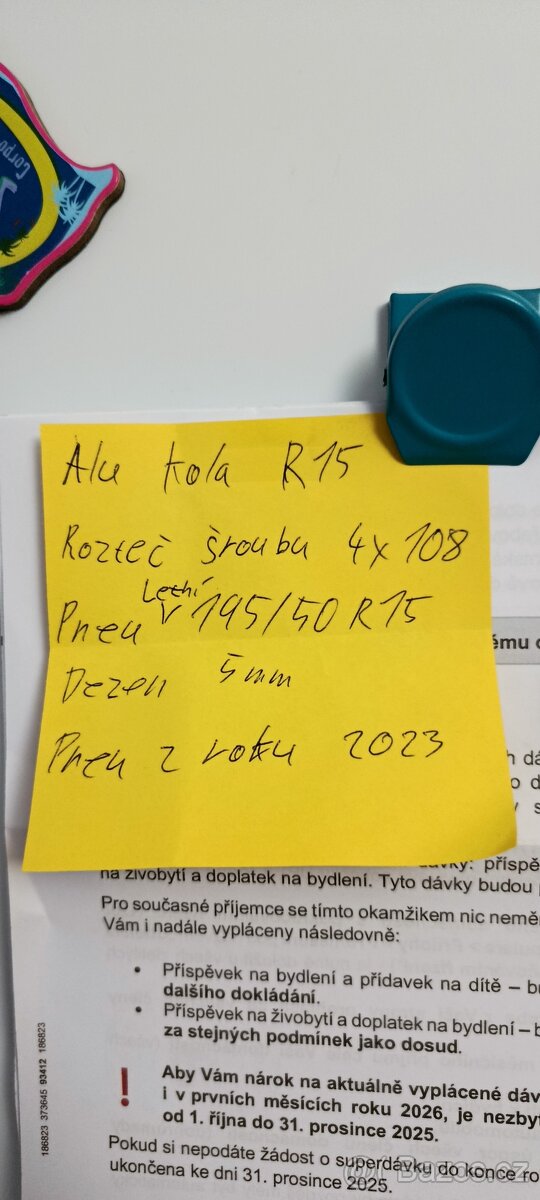 Corpo
Alu kola R15
Rozteč šroubu 4x108
Letní
Pneu 195/50 R15
Dezen 5mm
Pneu z roku 2023
ému
dávky: příspě
na živobytí a doplatek na bydlení. Tyto dávky budou
Pro současné příjemce se tímto okamžikem nic nemě
Vám i nadále vypláceny následovně:
• Příspěvek na bydlení a přídavek na dítě – b
dalšího dokládání.
• Příspěvek na živobytí a doplatek na bydlení – b
za stejných podmínek jako dosud.
Aby Vám nárok na aktuálně vyplácené dáv
i v prvních měsících roku 2026, je nezbyt
od 1. října do 31. prosince 2025.
Pokud si nepodáte žádost o superdávku do konce ro
ukončena ke dni 31. prosince 2025.
186823 373645 93412 186823
Bazos.cz